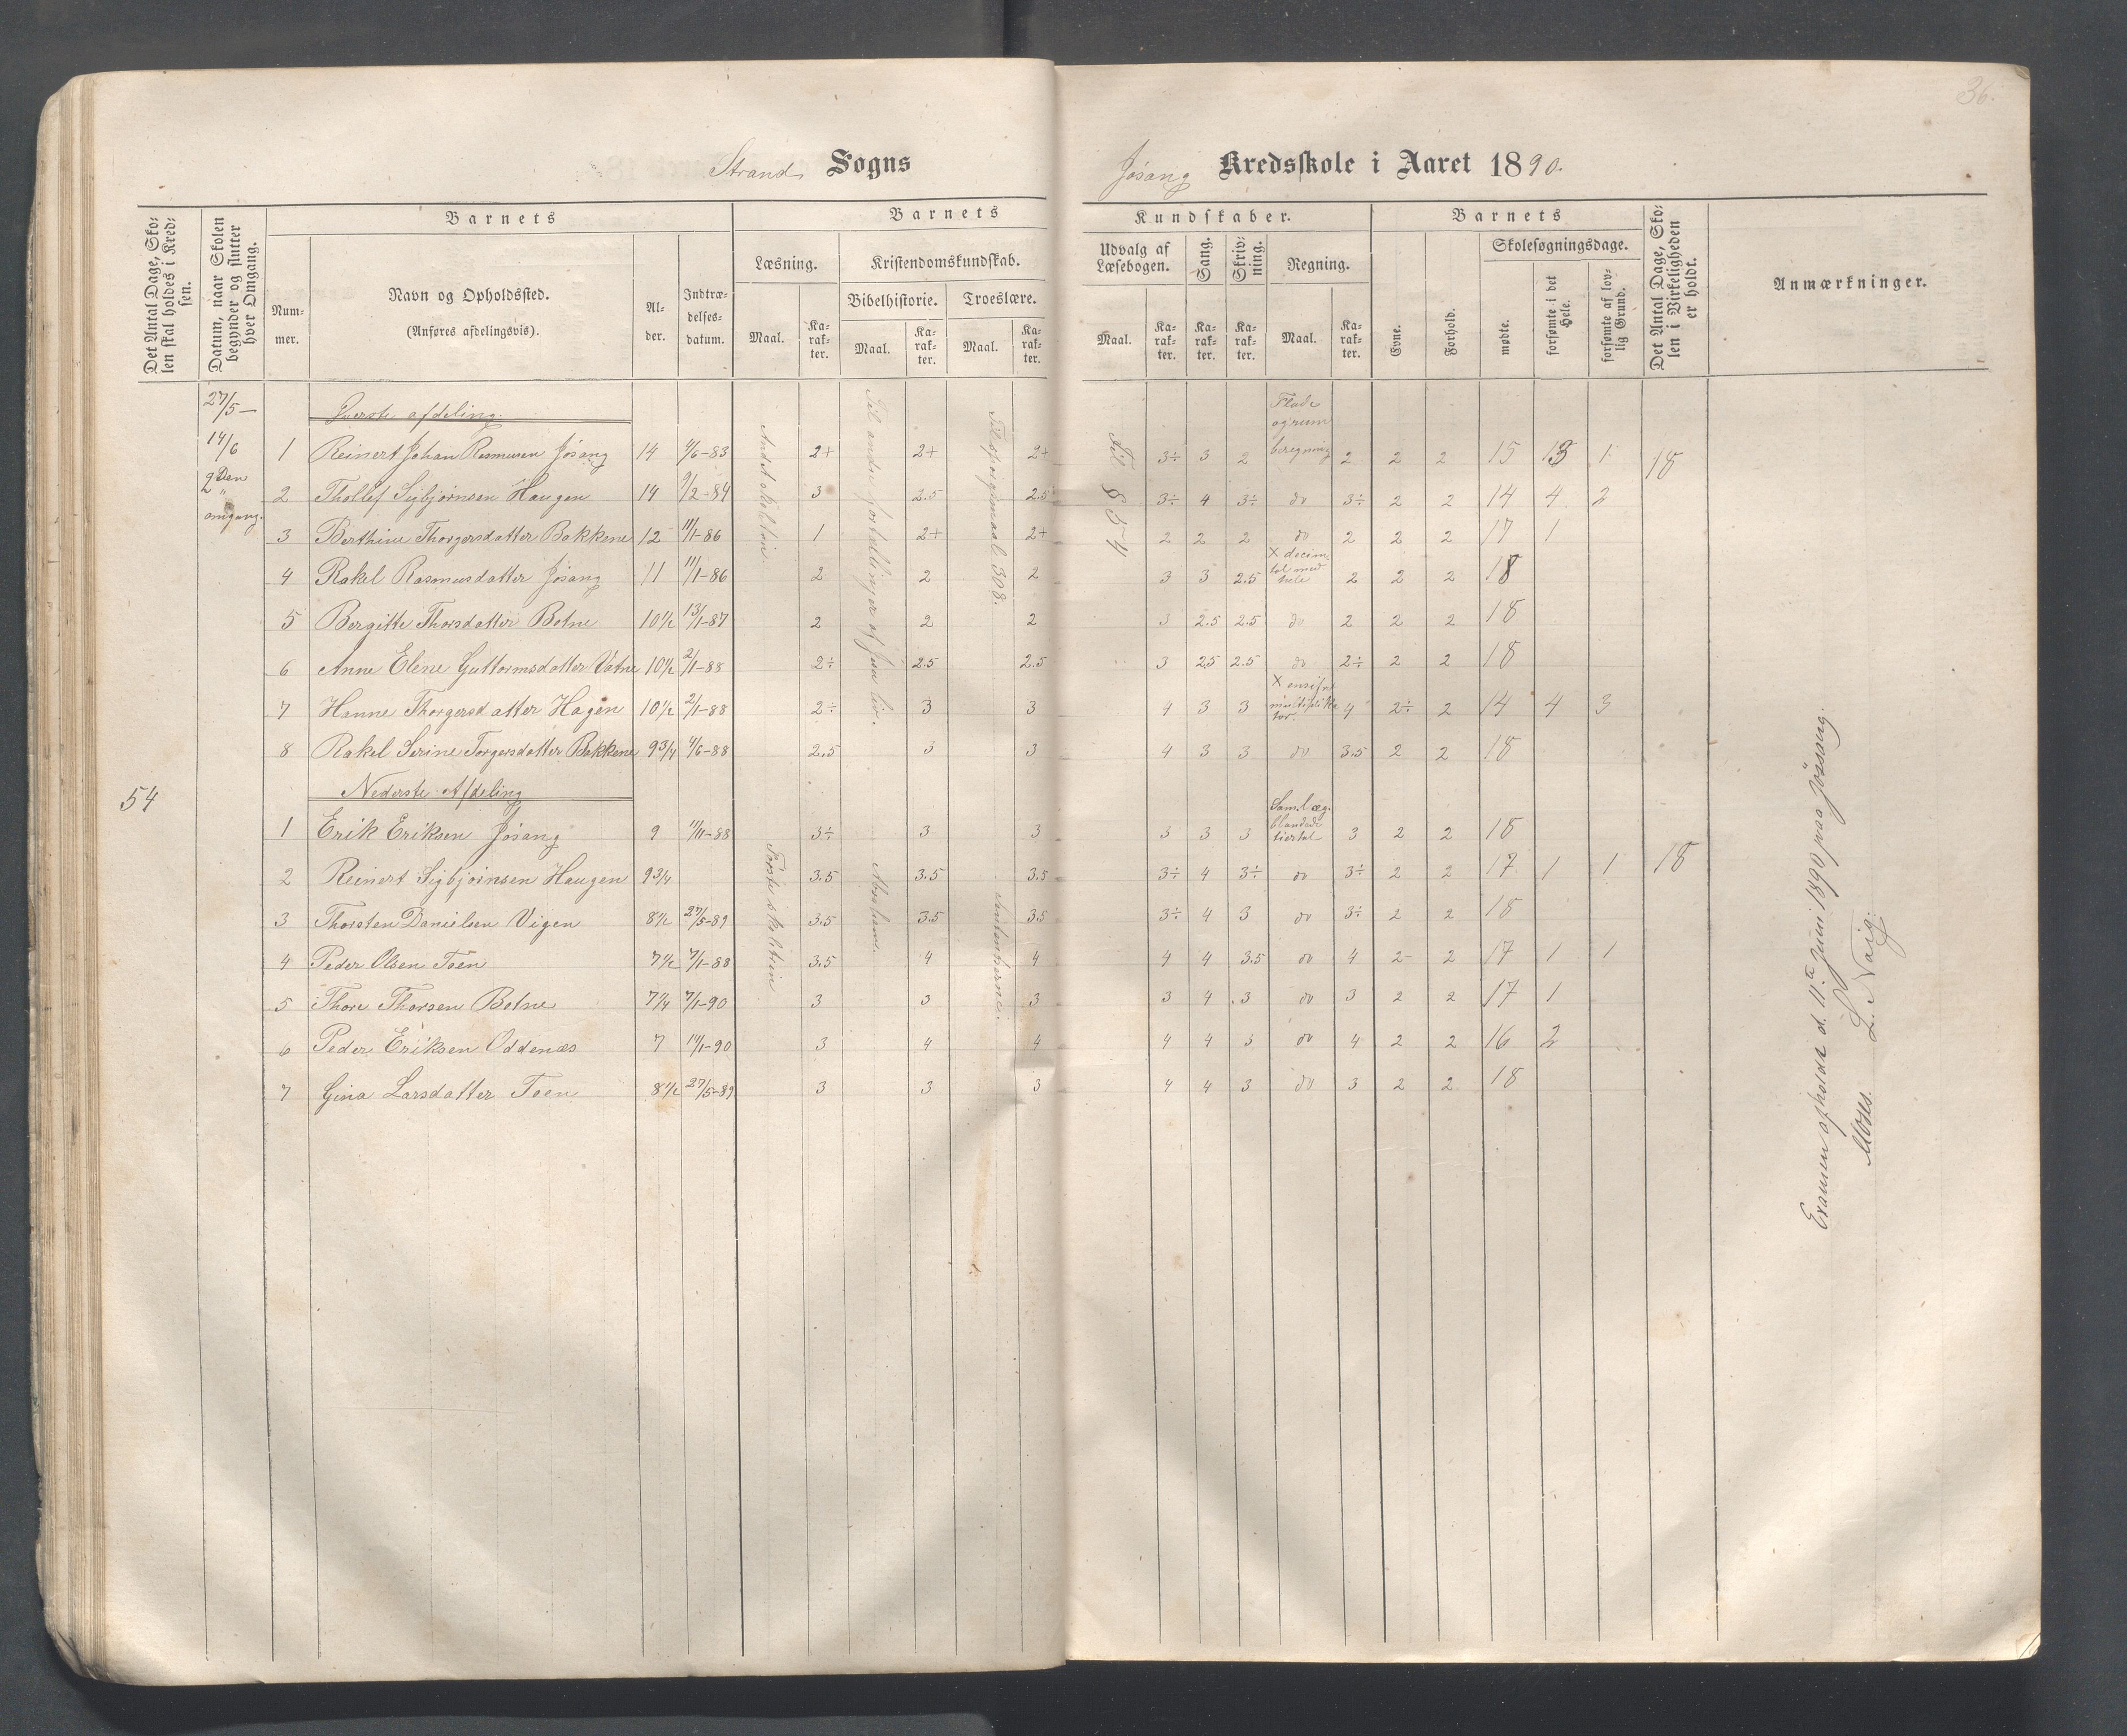 36.
Strand Sogns
Jøsang Kredsskole i Aaret 1890.
Det Antal Dage, Skolen skal holdes i Kredsen.
Datum, naar Skolen begynder og slutter hver Omgang.
Barnets
Nummer.
Navn og Opholdssted.
(Anføres afdelingsvis).
Alder.
Indtrædelsesdatum.
Barnets
Kundskaber.
Læsning.
Maal.
Karakter.
Kristendomskundskab.
Bibelhistorie.
Maal.
Karakter.
Troeslære.
Maal.
Karakter.
Udvalg af Læsebogen.
Maal.
Karakter.
Sang.
Karakter.
Skrivning.
Karakter.
Regning.
Maal.
Karakter.
Barnets
Evne.
Forhold.
Skolesøgningsdage.
mødte.
forsømte i det Hele.
forsømte af lovlig Grund.
Det Antal Dage, Skolen i Virkeligheden er holdt.
Anmærkninger.
54
27/5 –
14/6
2den
omgang.
Øverste afdeling.
1 Reinert Johan Rasmusen Jøsang 14 4/6-83 2+ 2+ 2+ 3÷ 3 2 Flade og rum beregning 2 2 2 15 13 1 18
2 Thollef Sigbjørnsen Haugen 14 9/2-84 3 2.5 2.5 3÷ 4 3÷ do 3÷ 2 2 14 4 2
3 Berthine Thorgersdatter Bakkene 12 11/1-86 1 2+ 2+ 2 2 2 do 2 2 2 17 1
4 Rakel Rasmusdatter Jøsang 11 11/1-86 2 2 2 3 3 2.5 X decimtal med hele 2 2 2 18
5 Bergitte Thorsdatter Botne 10½ 13/1-87 2 2 2 3 2.5 2.5 do 2 2 2 18
6 Anne Elene Guttormsdatter Vatne 10½ 2/1-88 2÷ 2.5 2.5 3 2.5 2.5 do 2÷ 2 2 18
7 Hanne Thorgersdatter Hagen 10½ 2/1-88 2÷ 3 3 4 3 3 4 2÷ 2 14 4 3
8 Rakel Serine Torgersdatter Bakkene 9 3/4 4/6-88 2.5 3 3 4 3 3 do 3.5 2 2 18
Andet skoletrin
Til andre fortællinger af Jesu liv.
Til spørgsmaal 308.
Til 854
Nederste Afdeling
1 Erik Eriksen Jøsang 9 11/11-88 3÷ 3 3 3 3 3 3 2 2 18
2 Reinert Sigbjørnsen Haugen 9 3/4 3.5 3.5 3.5 3÷ 4 3÷ do 3÷ 2 2 17 1 1 18
3 Thorsten Danielsen Vigen 8½ 27/5-89 3.5 3.5 3.5 3÷ 4 3 do 3÷ 2 2 18
4 Peder Olsen Toen 7½ 7/1-88 3.5 4 4 4 4 3.5 do 4 2 2 17 1 1
5 Thore Thorsen Botne 7 1/4 7/1-90 3 3 3 3 4 3 do 3 2 2 17 1
6 Peder Eriksen Oddenæs 7 14/1-90 3 4 4 4 4 3 do 4 2 2 16 2
7 Gina Larsdatter Toen 8½ 27/5-89 3 3 3 4 4 3 do 3 2 2 18
Første skoletrin
Absalom.
Sententserne.
Examen afholdt d. 11te Juni 1890 paa Jössang.
L. Naig.